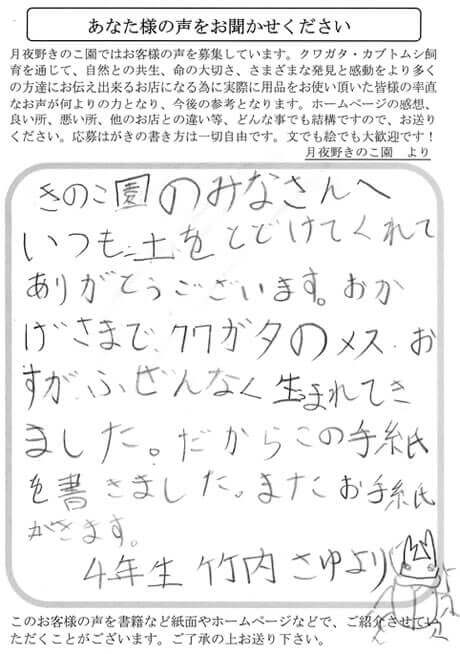 あなた様の声をお聞かせください
月夜野きのこ園ではお客様の声を募集しています。クワガタ・カブトムシ飼
育を通じて、自然との共生、命の大切さ、さまざまな発見と感動をより多く
の方達にお伝え出来るお店になる為に実際に用品をお使い頂いた皆様の率直
なお声が何よりの力となり、今後の参考となります。ホームページの感想、
良い所、悪い所、他のお店との違い等、どんな事でも結構ですので、お送り
ください。応募はがきの書き方は一切自由です。文でも絵でも大歓迎です！
月夜野きのこ園　より
きのこ園のみなさんへ
いつも土をとどけてくれて
ありがとうございます。おか
げさまで、クワガタのメス・お
すが、ふぜんなく生まれてき
ました。だからこの手紙
を書きました。またお手紙
がきます。
4年生 竹内 さゆより
このお客様の声を書籍など紙面やホームページなどで、ご紹介させてい
ただくことがございます。ご了承の上お送り下さい。